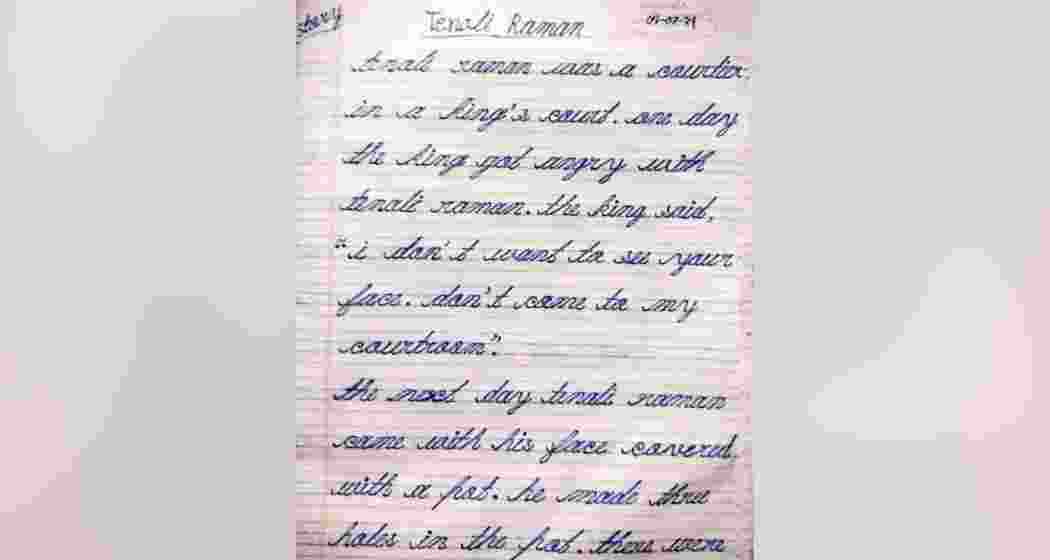 story
Tenali Raman
tenali raman was a courtier
in a king's court. one day
the king got angry with
tenali raman. the king said,
"i don't want to see your
face. don't come to my
courtroom".
the next day tenali raman
came with his face covered
with a pot. he made three
holes in the pot. there were